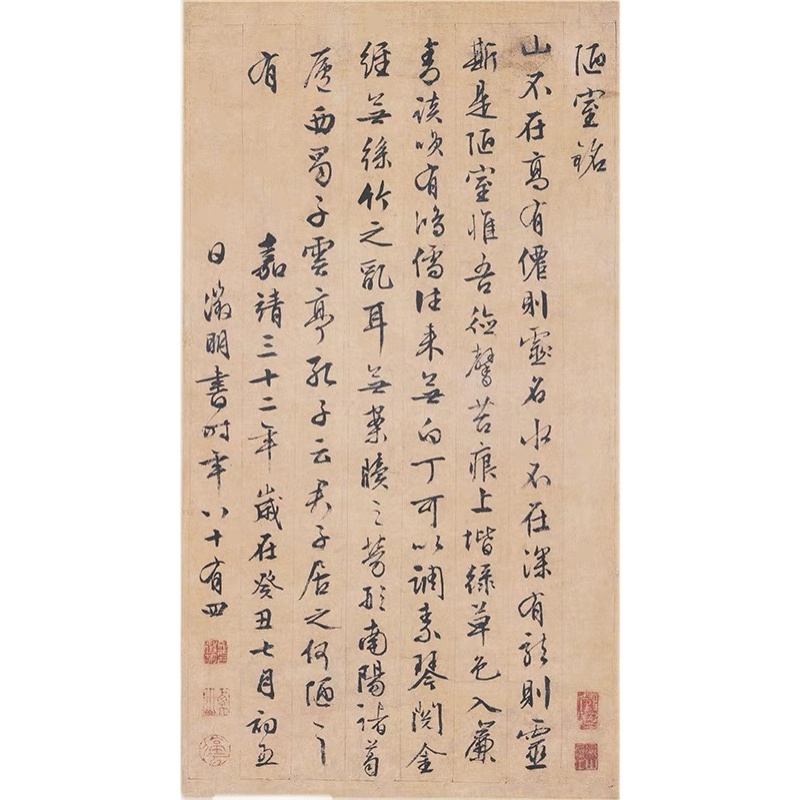 陋室銘
山不在高有僊則靈名水不在深有龍則靈
斯是陋室惟吾德馨苔痕上堦綠草色入簾
青談咲有鴻儒往來無白丁可以調素琴閱金
經無絲竹之亂耳無案牘之勞形南陽諸葛
廬西蜀子雲亭孔子云君子居之何陋之
有
嘉靖三十二年歲在癸丑七月初五
日徵明書時年八十有四